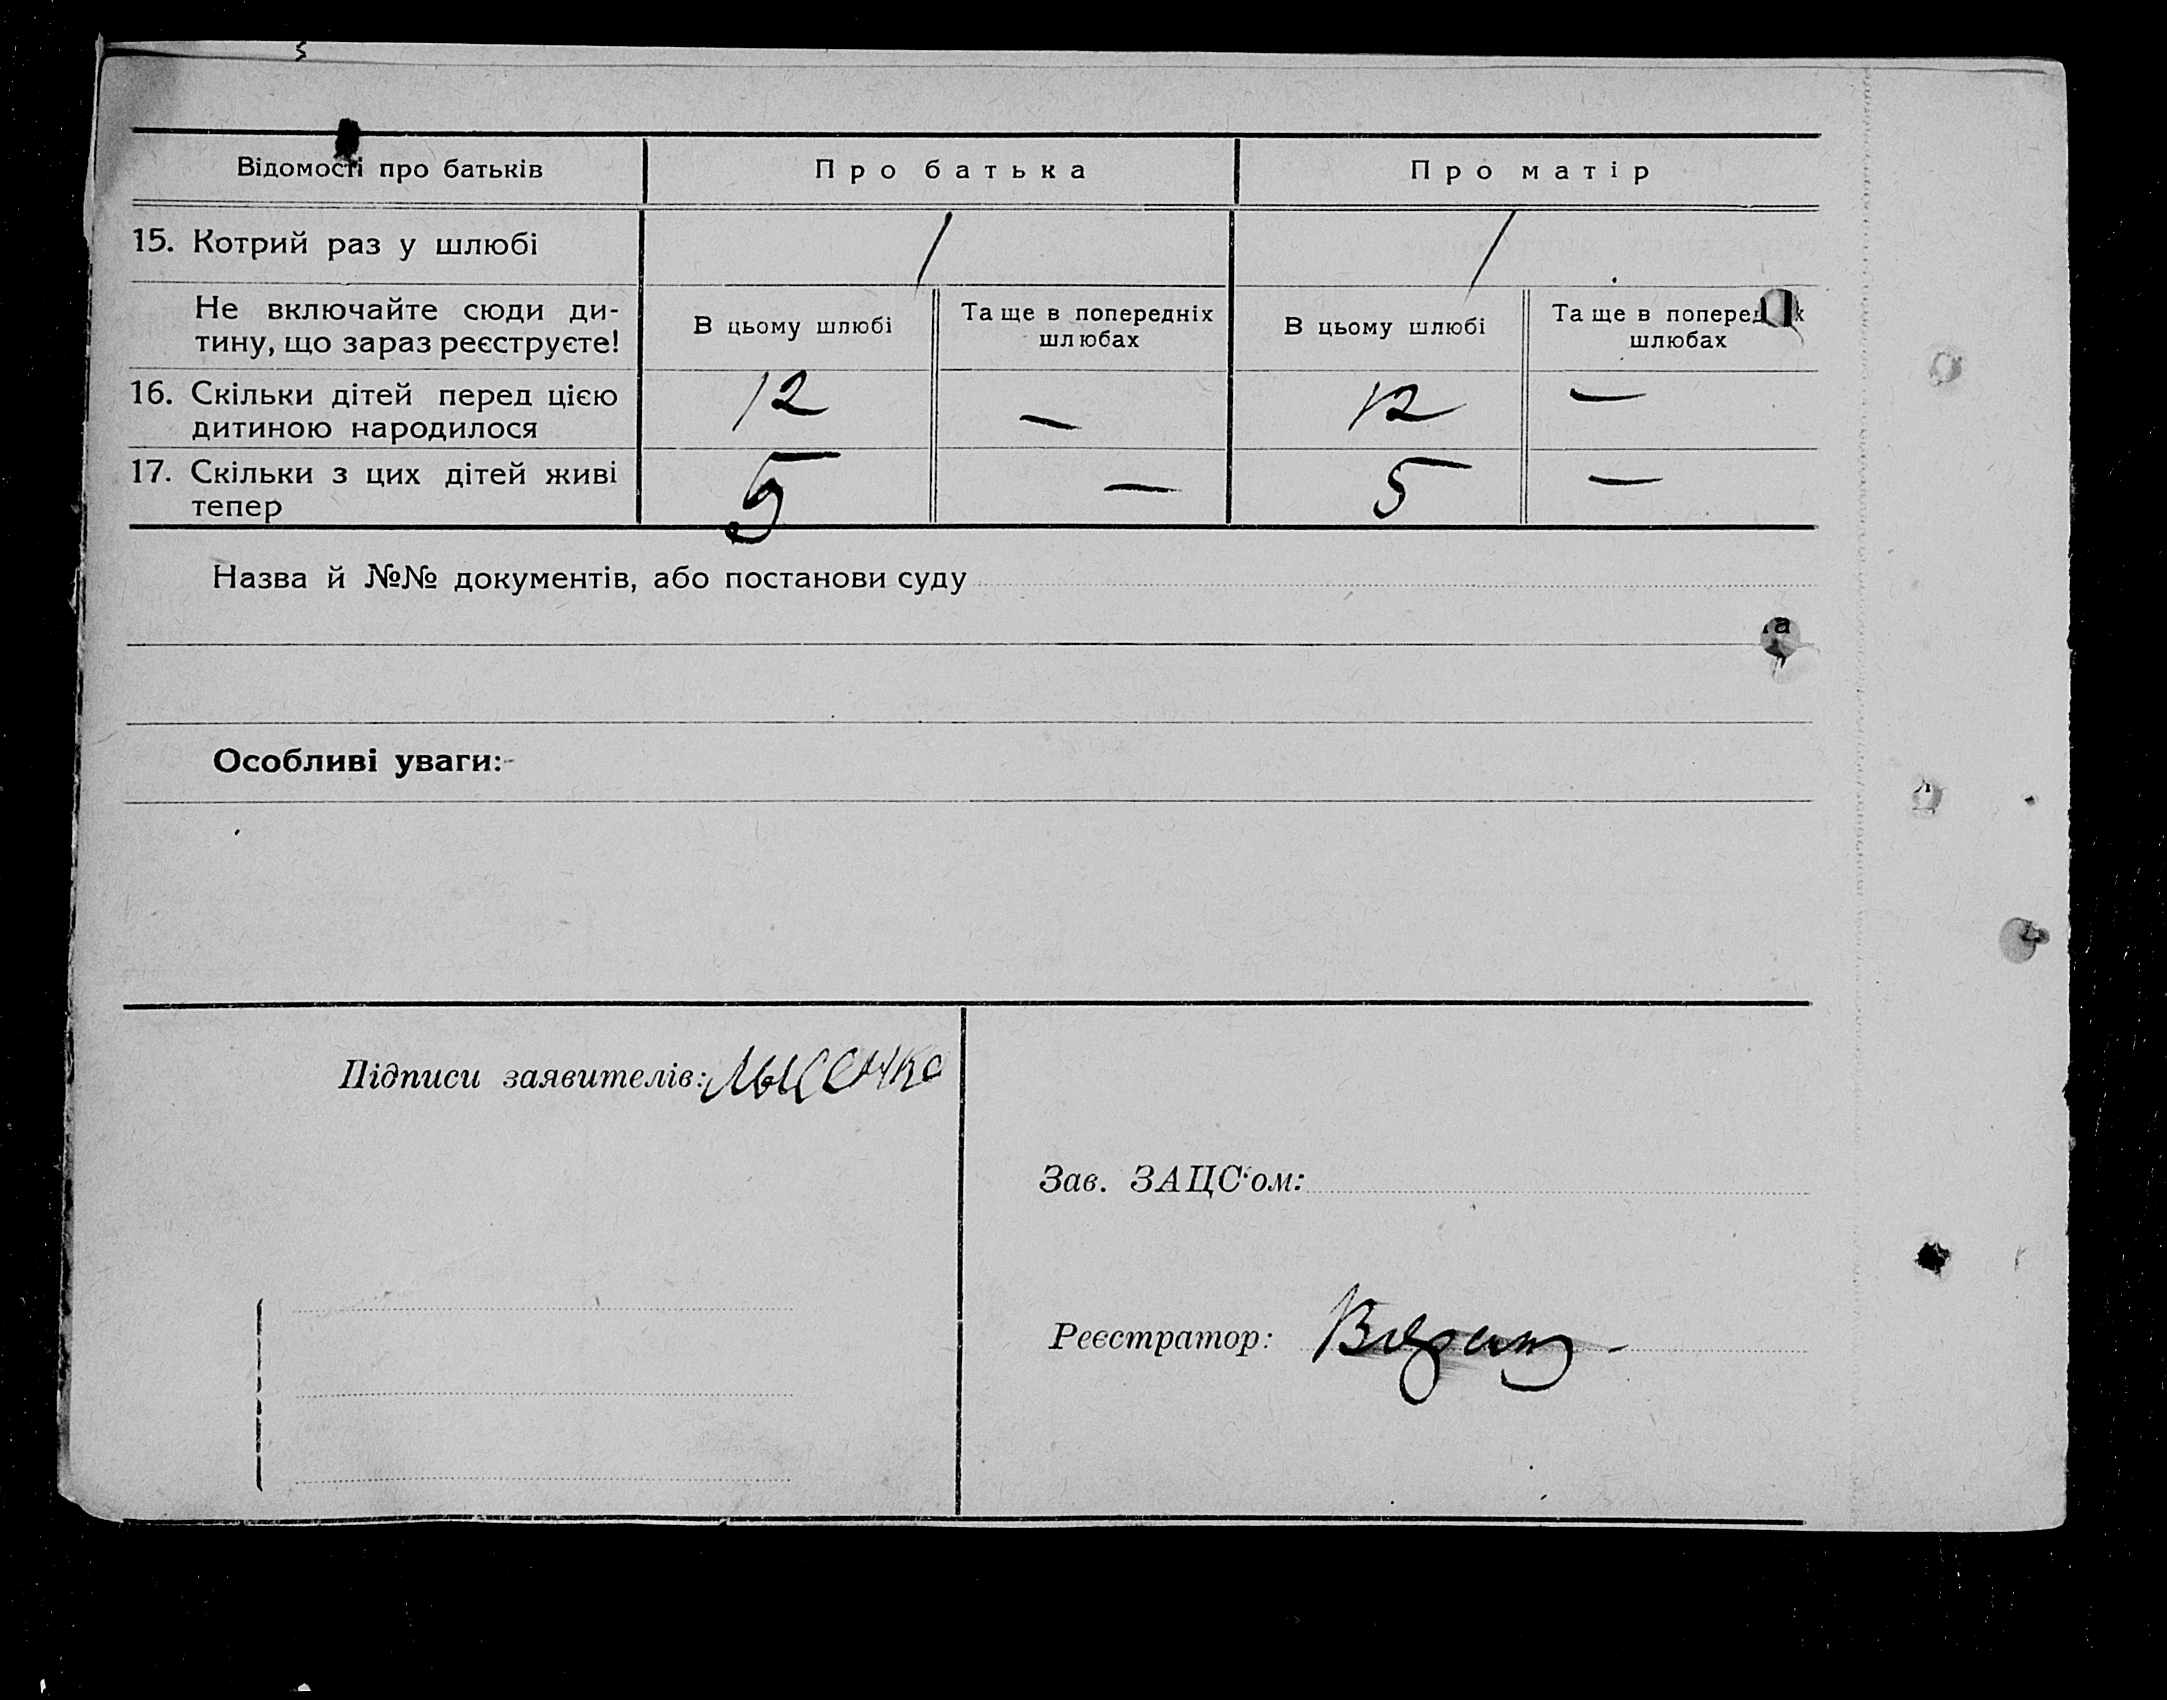 Відомості про батьків Про батька Про матір
15. Котрий раз у шлюбі 1 1
Не включайте сюди ди-
тину, що зараз реєструєте!
В цьому шлюбі
Та ще в попередніх
шлюбах
В цьому шлюбі
Та ще в поперед х
шлюбах
16. Скільки дітей перед цією
дитиною народилося
12 — 12 —
17. Скільки з цих дітей живі
тепер
5 — 5 —
Назва й №№ документів, або постанови суду
Особливі уваги:-
Підписи заявителів: Лысенко
Зав. ЗАЦС‘ом:
Реєстратор: